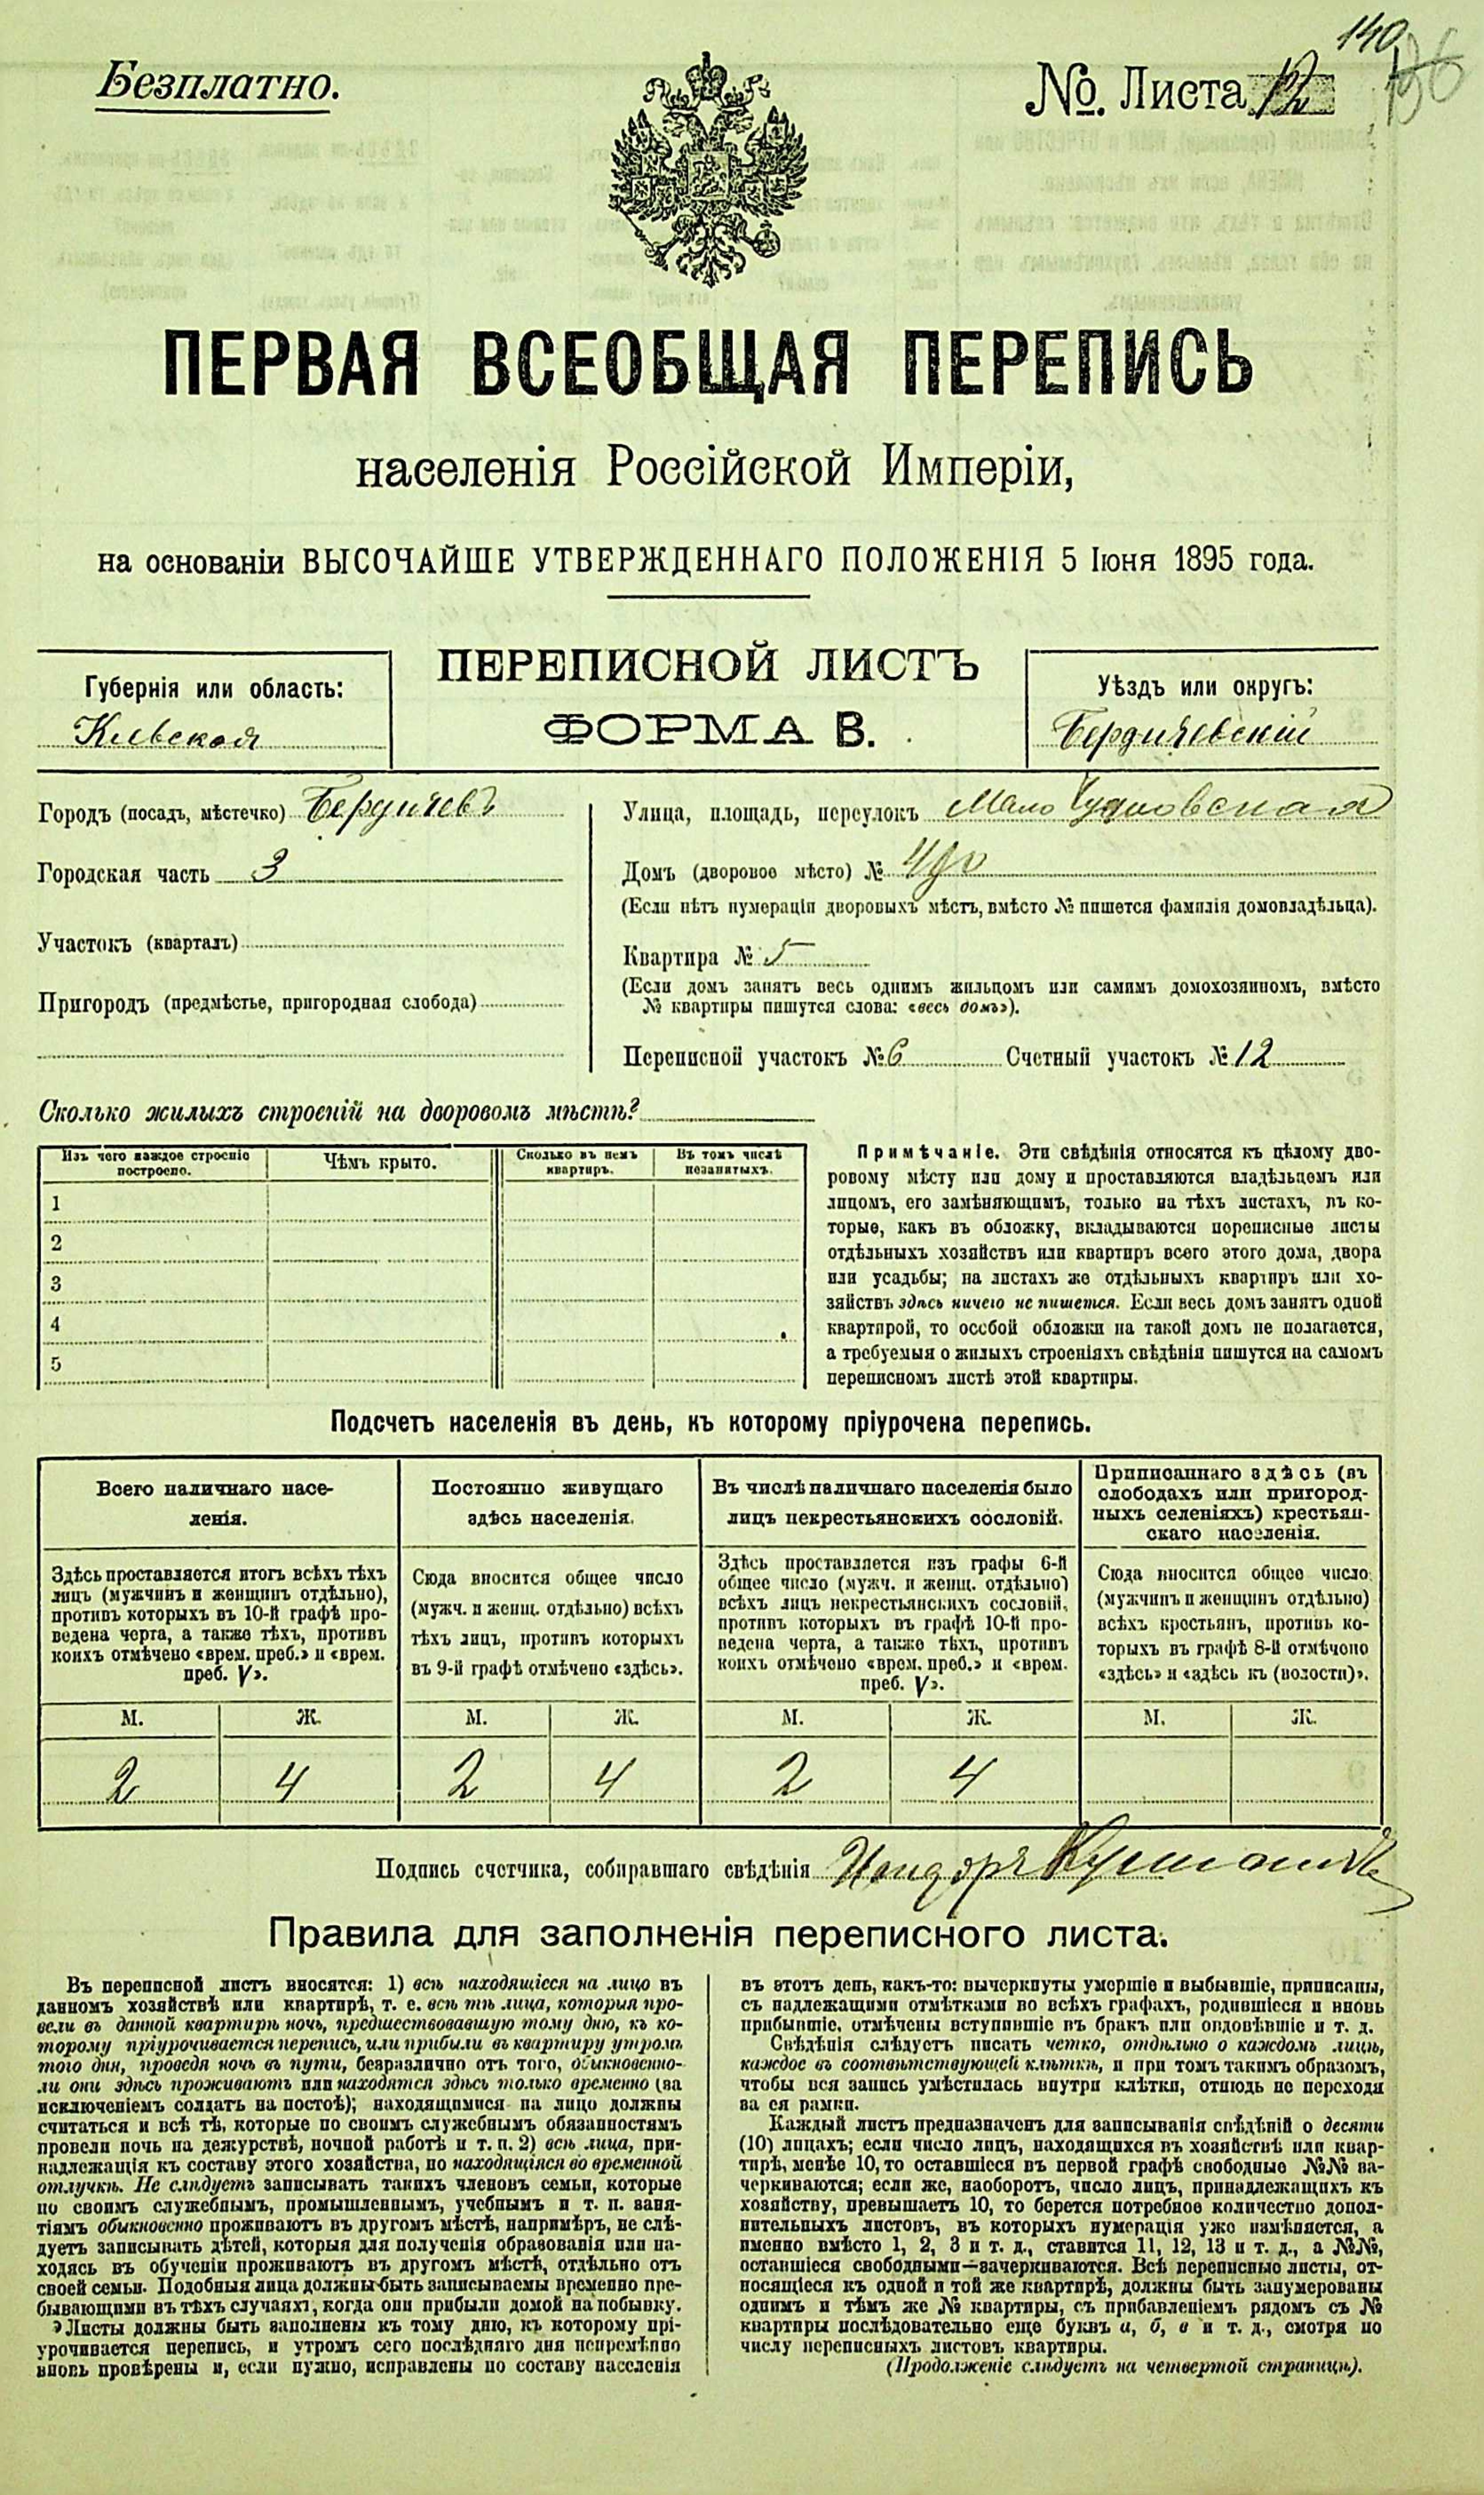 140
Безплатно.
№. Листа 12
ПЕРВАЯ ВСЕОБЩАЯ ПЕРЕПИСЬ
населенія Россійской Имперіи,
на основаніи ВЫСОЧАЙШЕ УТВЕРЖДЕННАГО ПОЛОЖЕНІЯ 5 Іюня 1895 года.
ПЕРЕПИСНОЙ ЛИСТЪ
ФОРМА В.
Губернія или область:
Кіевская
Уѣздъ или округъ:
Бердичевскій
Городъ (посадъ, мѣстечко) Бердичевъ
Городская часть 3
Участокъ (кварталъ)
Пригородъ (предмѣстье, пригородная слобода)
Улица, площадь, переулокъ Мало Чудновская
Домъ (дворовое мѣсто) №
(Если нѣтъ нумераціи дворовыхъ мѣстъ, вмѣсто № пишется фамилія домовладѣльца).
Квартира № 5
(Если домъ занятъ весь однимъ жильцомъ или самимъ домохозяиномъ, вмѣсто
№ квартиры пишутся слова: «весь домъ»).
Переписной участокъ № 6 Счетный участокъ № 12
Сколько жилыхъ строеній на дворовомъ мѣстѣ?
Изъ чего каждое строеніе
построено.
Чѣмъ крыто.
Сколько въ немъ
квартиръ.
Въ томъ числѣ
незанятыхъ.
1
2
3
4
5
Примѣчаніе. Эти свѣдѣнія относятся къ цѣлому дво-
ровому мѣсту или дому и проставляются владѣльцемъ или
лицомъ, его замѣняющимъ, только на тѣхъ листахъ, въ ко-
торые, какъ въ обложку, вкладываются переписные листы
отдѣльныхъ хозяйствъ или квартиръ всего этого дома, двора
или усадьбы; на листахъ же отдѣльныхъ квартиръ или хо-
зяйствъ здѣсь ничего не пишется. Если весь домъ занятъ одной
квартирой, то особой обложки на такой домъ не полагается,
а требуемыя о жилыхъ строеніяхъ свѣдѣнія пишутся на самомъ
переписномъ листѣ этой квартиры.
Подсчетъ населенія въ день, къ которому пріурочена перепись.
Всего наличнаго насе-
ленія.
Здѣсь проставляется итогъ всѣхъ тѣхъ
лицъ (мужчинъ и женщинъ отдѣльно),
противъ которыхъ въ 10-й графѣ про-
ведена черта, а также тѣхъ, противъ
коихъ отмѣчено «врем. преб.» и «врем.
преб. V».
М. Ж.
2 4
Постоянно живущаго
здѣсь населенія.
Сюда вносится общее число
(мужч. и женщ. отдѣльно) всѣхъ
тѣхъ лицъ, противъ которыхъ
въ 9-й графѣ отмѣчено «здѣсь».
М. Ж.
2 4
Въ числѣ наличнаго населенія было
лицъ некрестьянскихъ сословій.
Здѣсь проставляется изъ графы 6-й
общее число (мужч. и женщ. отдѣльно)
всѣхъ лицъ некрестьянскихъ сословій,
противъ которыхъ въ графѣ 10-й про-
ведена черта, а также тѣхъ, противъ
коихъ отмѣчено «врем. преб.» и «врем.
преб. V».
М. Ж.
2 4
Приписаннаго здѣсь (въ
слободахъ или пригород-
ныхъ селеніяхъ) крестьян-
скаго населенія.
Сюда вносится общее число
(мужчинъ и женщинъ отдѣльно)
всѣхъ крестьянъ, противъ ко-
торыхъ въ графѣ 8-й отмѣчено
«здѣсь» и «здѣсь къ (волости)».
М. Ж.
Подпись счетчика, собиравшаго свѣдѣнія
Правила для заполненія переписного листа.
Въ переписной листъ вносятся: 1) всѣ находящіеся на лицо въ
данномъ хозяйствѣ или квартирѣ, т. е. всѣ тѣ лица, которыя про-
вели въ данной квартирѣ ночь, предшествовавшую тому дню, къ ко-
торому пріурочивается перепись, или прибыли въ квартиру утромъ
того дня, проведя ночь въ пути, безразлично отъ того, обыкновенно-
ли они здѣсь проживаютъ или находятся здѣсь только временно (за
исключеніемъ солдатъ на постоѣ); находящимися на лицо должны
считаться и всѣ тѣ, которые по своимъ служебнымъ обязанностямъ
провели ночь на дежурствѣ, ночной работѣ и т. п. 2) всѣ лица, при-
надлежащія къ составу этого хозяйства, но находящіяся во временной
отлучкѣ. Не слѣдуетъ записывать такихъ членовъ семьи, которые
по своимъ служебнымъ, промышленнымъ, учебнымъ и т. п. заня-
тіямъ обыкновенно проживаютъ въ другомъ мѣстѣ, напримѣръ, не слѣ-
дуетъ записывать дѣтей, которыя для полученія образованія или на-
ходясь въ обученіи проживаютъ въ другомъ мѣстѣ, отдѣльно отъ
своей семьи. Подобныя лица должны быть записываемы временно пре-
бывающими въ тѣхъ случаяхъ, когда они прибыли домой на побывку.
Листы должны быть заполнены къ тому дню, къ которому прі-
урочивается перепись, и утромъ сего послѣдняго дня непремѣнно
вновь провѣрены и, если нужно, исправлены по составу населенія
въ этотъ день, какъ-то: вычеркнуты умершіе и выбывшіе, приписаны,
съ надлежащими отмѣтками во всѣхъ графахъ, родившіеся и вновь
прибывшіе, отмѣчены вступившіе въ бракъ или овдовѣвшіе и т. д.
Свѣдѣнія слѣдуетъ писать четко, отдѣльно о каждомъ лицѣ,
каждое въ соотвѣтствующей клѣткѣ, и при томъ такимъ образомъ,
чтобы вся запись умѣстилась внутри клѣтки, отнюдь не переходя
за ея рамки.
Каждый листъ предназначенъ для записыванія свѣдѣній о десяти
(10) лицахъ; если число лицъ, находящихся въ хозяйствѣ или квар-
тирѣ, менѣе 10, то оставшіеся въ первой графѣ свободные №№ за-
черкиваются; если же, наоборотъ, число лицъ, принадлежащихъ къ
хозяйству, превышаетъ 10, то берется потребное количество допол-
нительныхъ листовъ, въ которыхъ нумерація уже измѣняется, а
именно вмѣсто 1, 2, 3 и т. д., ставится 11, 12, 13 и т. д., а №№,
оставшіеся свободными—зачеркиваются. Всѣ переписные листы, от-
носящіеся къ одной и той же квартирѣ, должны быть занумерованы
однимъ и тѣмъ же № квартиры, съ прибавленіемъ рядомъ съ №
квартиры послѣдовательно еще буквъ а, б, в и т. д., смотря по
числу переписныхъ листовъ квартиры.
(Продолженіе слѣдуетъ на четвертой страницѣ).